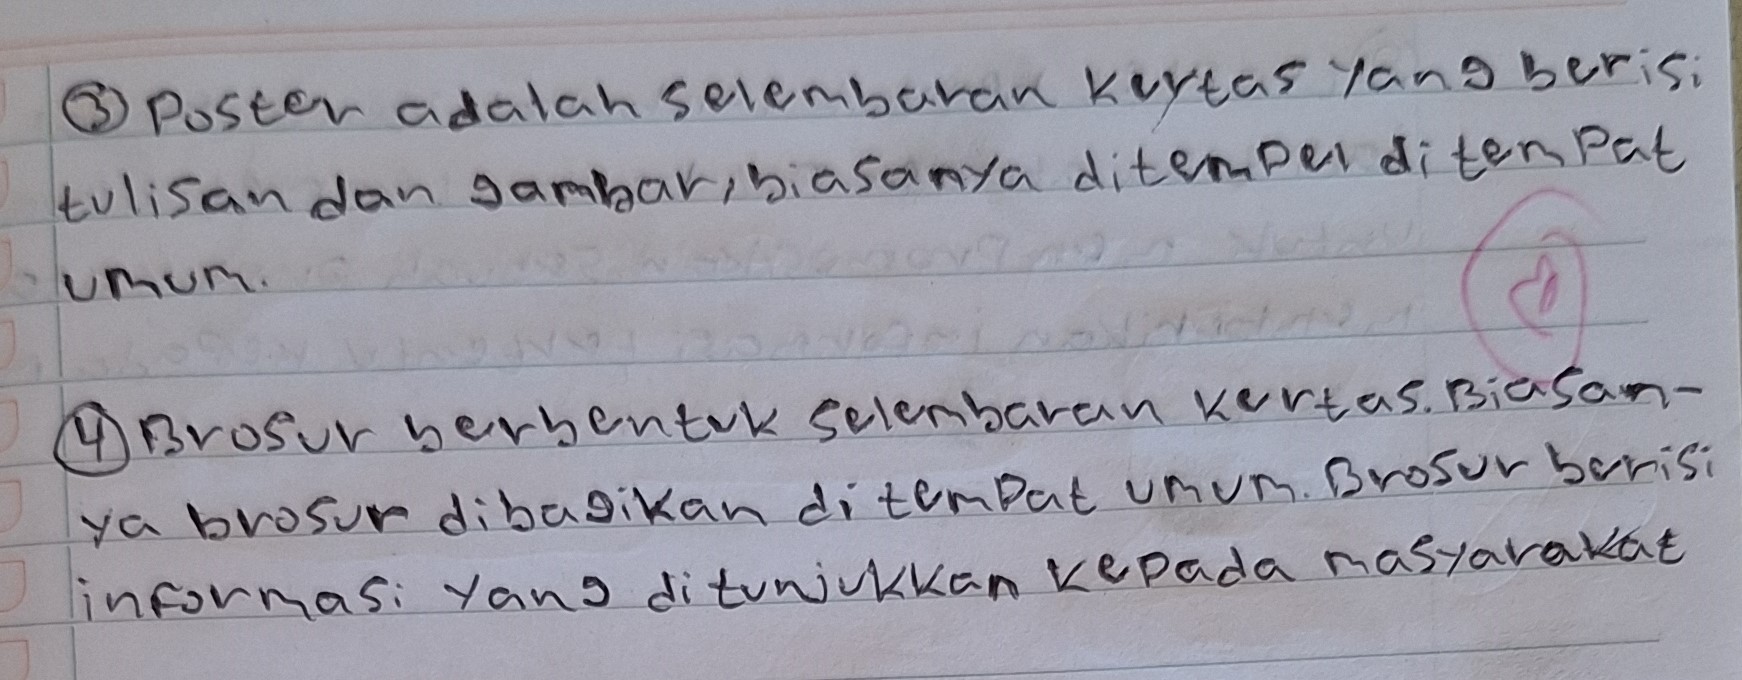 ③ Poster adalah selembaran kertas yang berisi
tulisan dan gambar, biasanya ditempel di tempat
umum.
④ Brosur berbentuk selembaran kertas. Biasan-
ya brosur dibagikan di tempat umum. Brosur berisi
informasi yang ditunjukkan kepada masyarakat